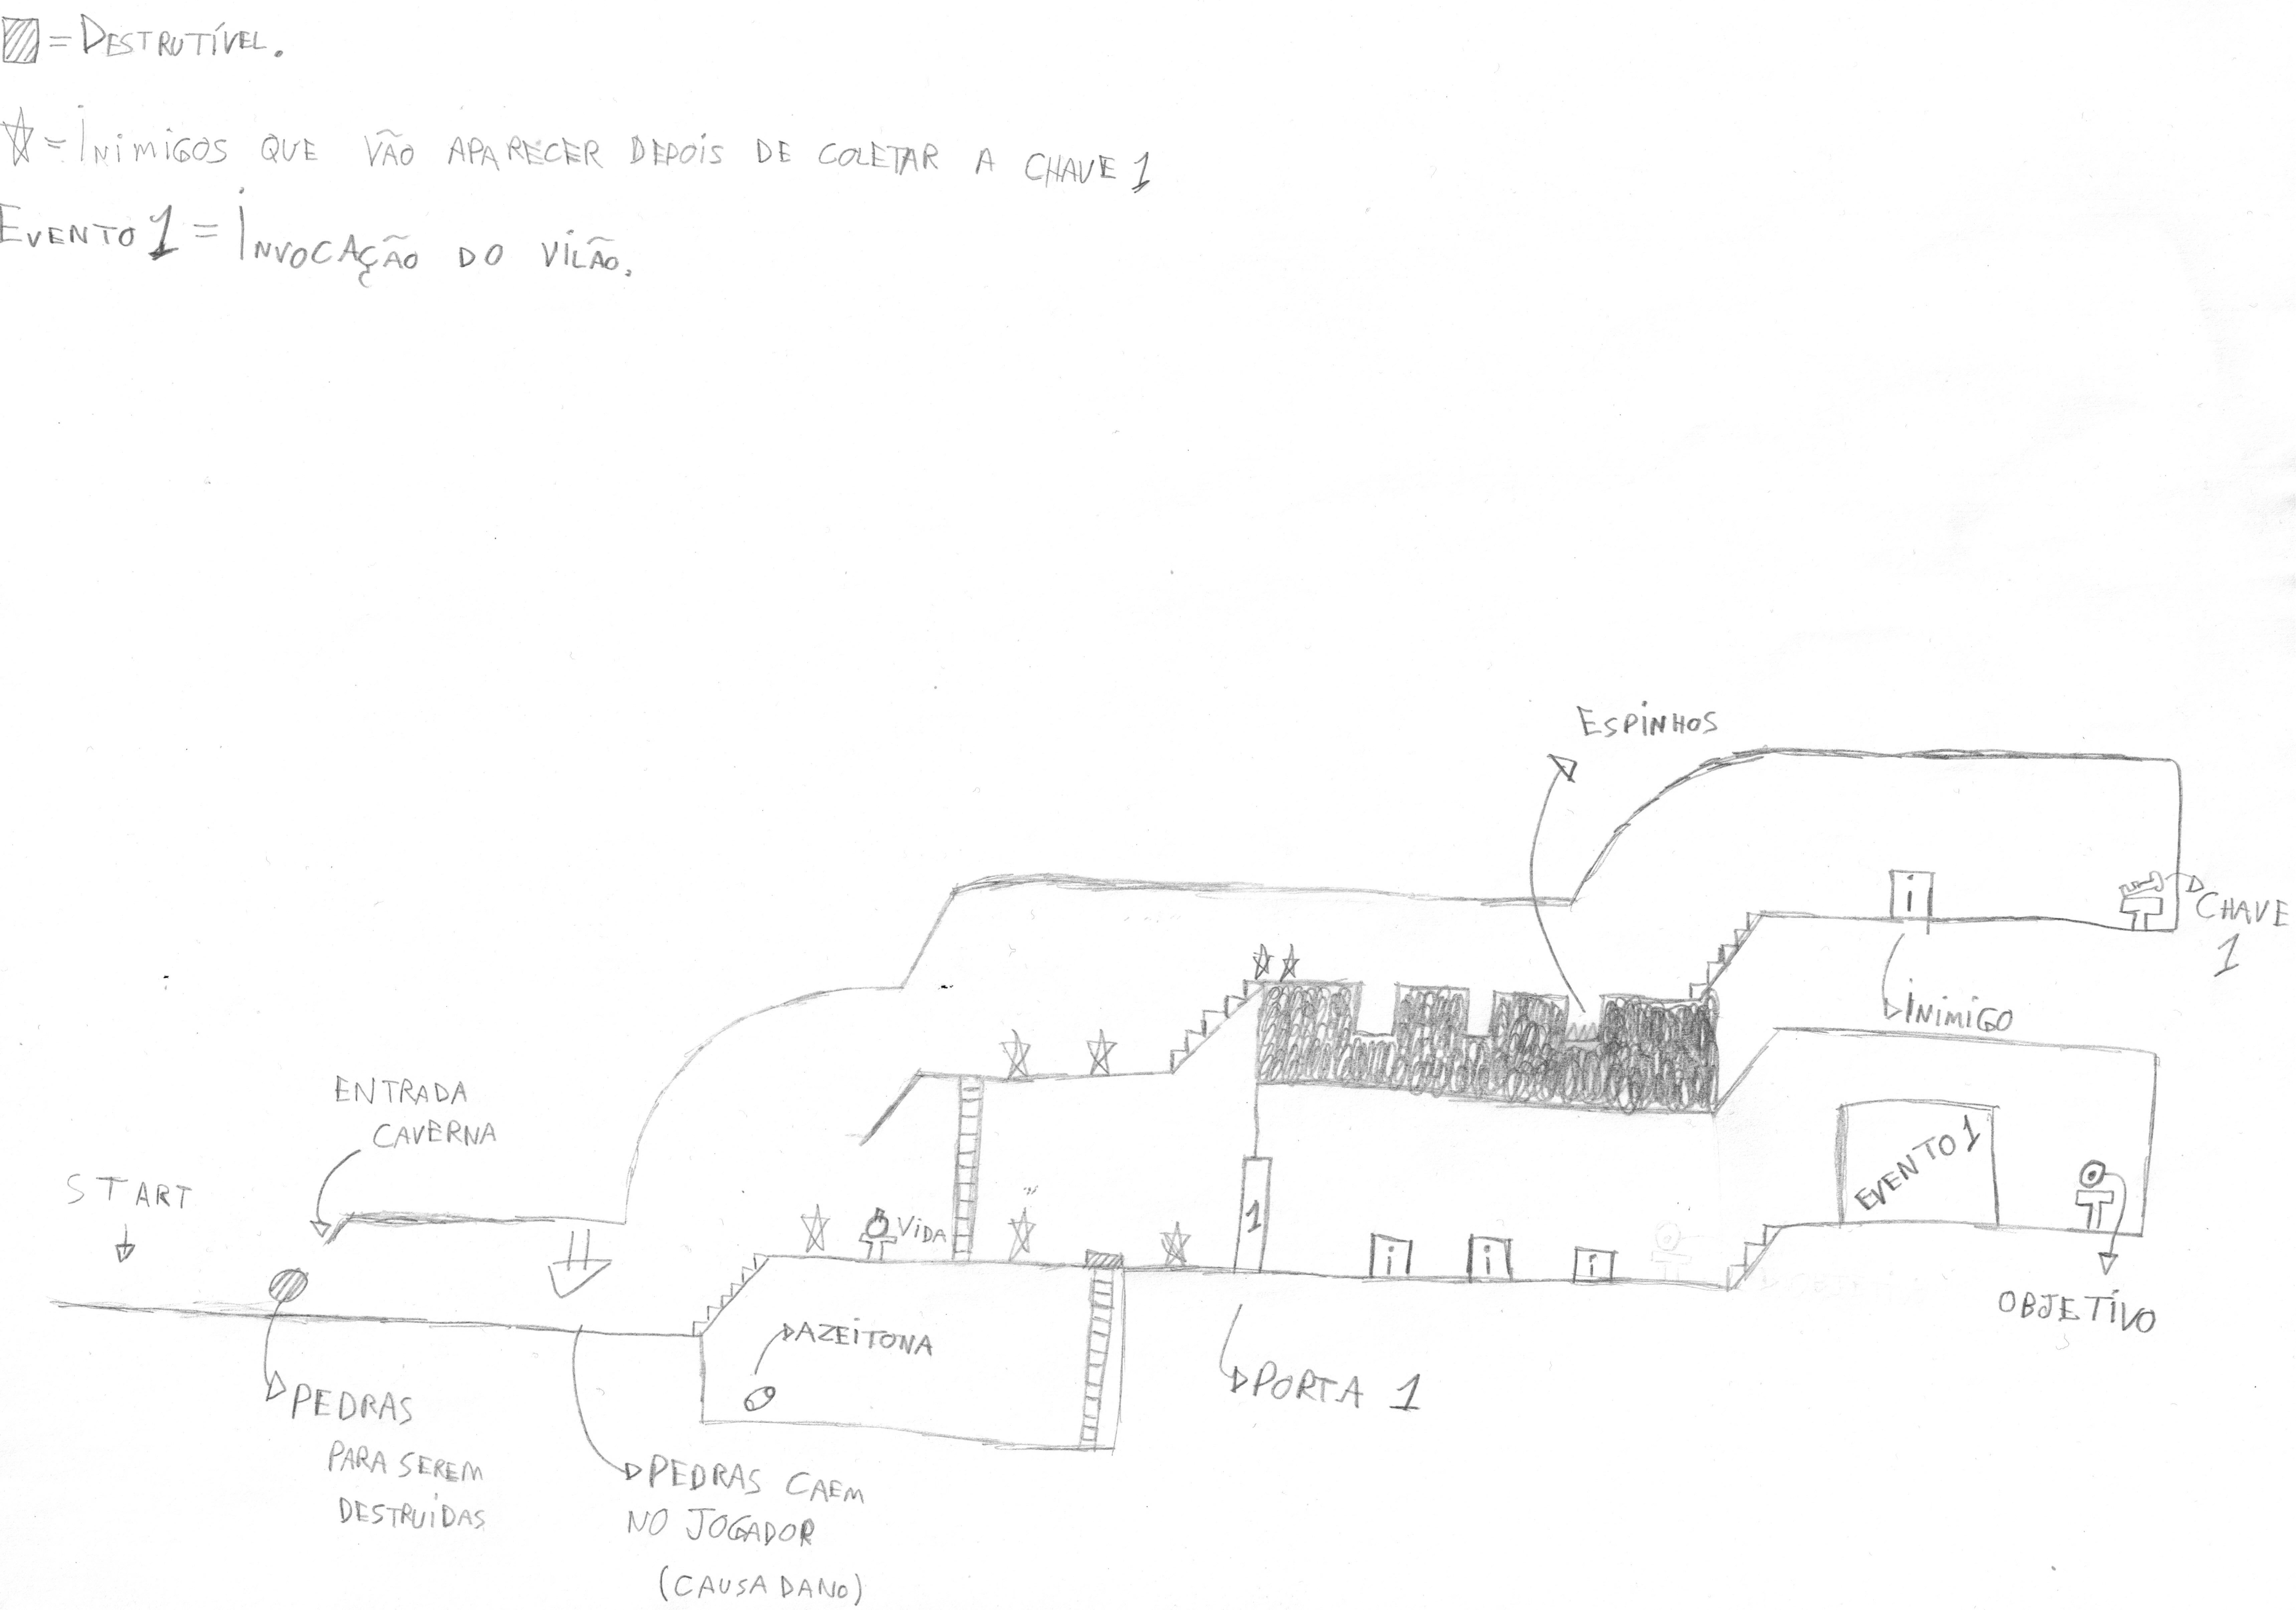 = DESTRUTÍVEL.
= INIMIGOS QUE VÃO APARECER DEPOIS DE COLETAR A CHAVE 1
EVENTO 1 = INVOCAÇÃO DO VILÃO.
ESPINHOS
CHAVE
1
i
INIMIGO
ENTRADA
CAVERNA
START
EVENTO 1
VIDA
1
i
i
i
OBJETIVO
AZEITONA
PORTA 1
PEDRAS
PARA SEREM
DESTRUIDAS
PEDRAS CAEM
NO JOGADOR
(CAUSA DANO)